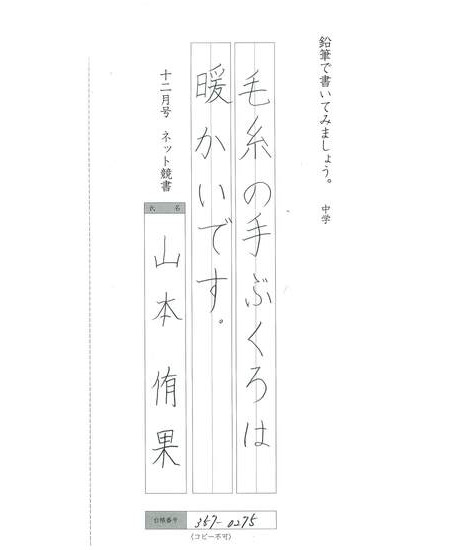 鉛筆で書いてみましょう。 中学
毛糸の手ぶくろは
暖かいです。
十二月号 ネット競書
氏 名
山本 侑果
合格番号 357-0275
(コピー不可)